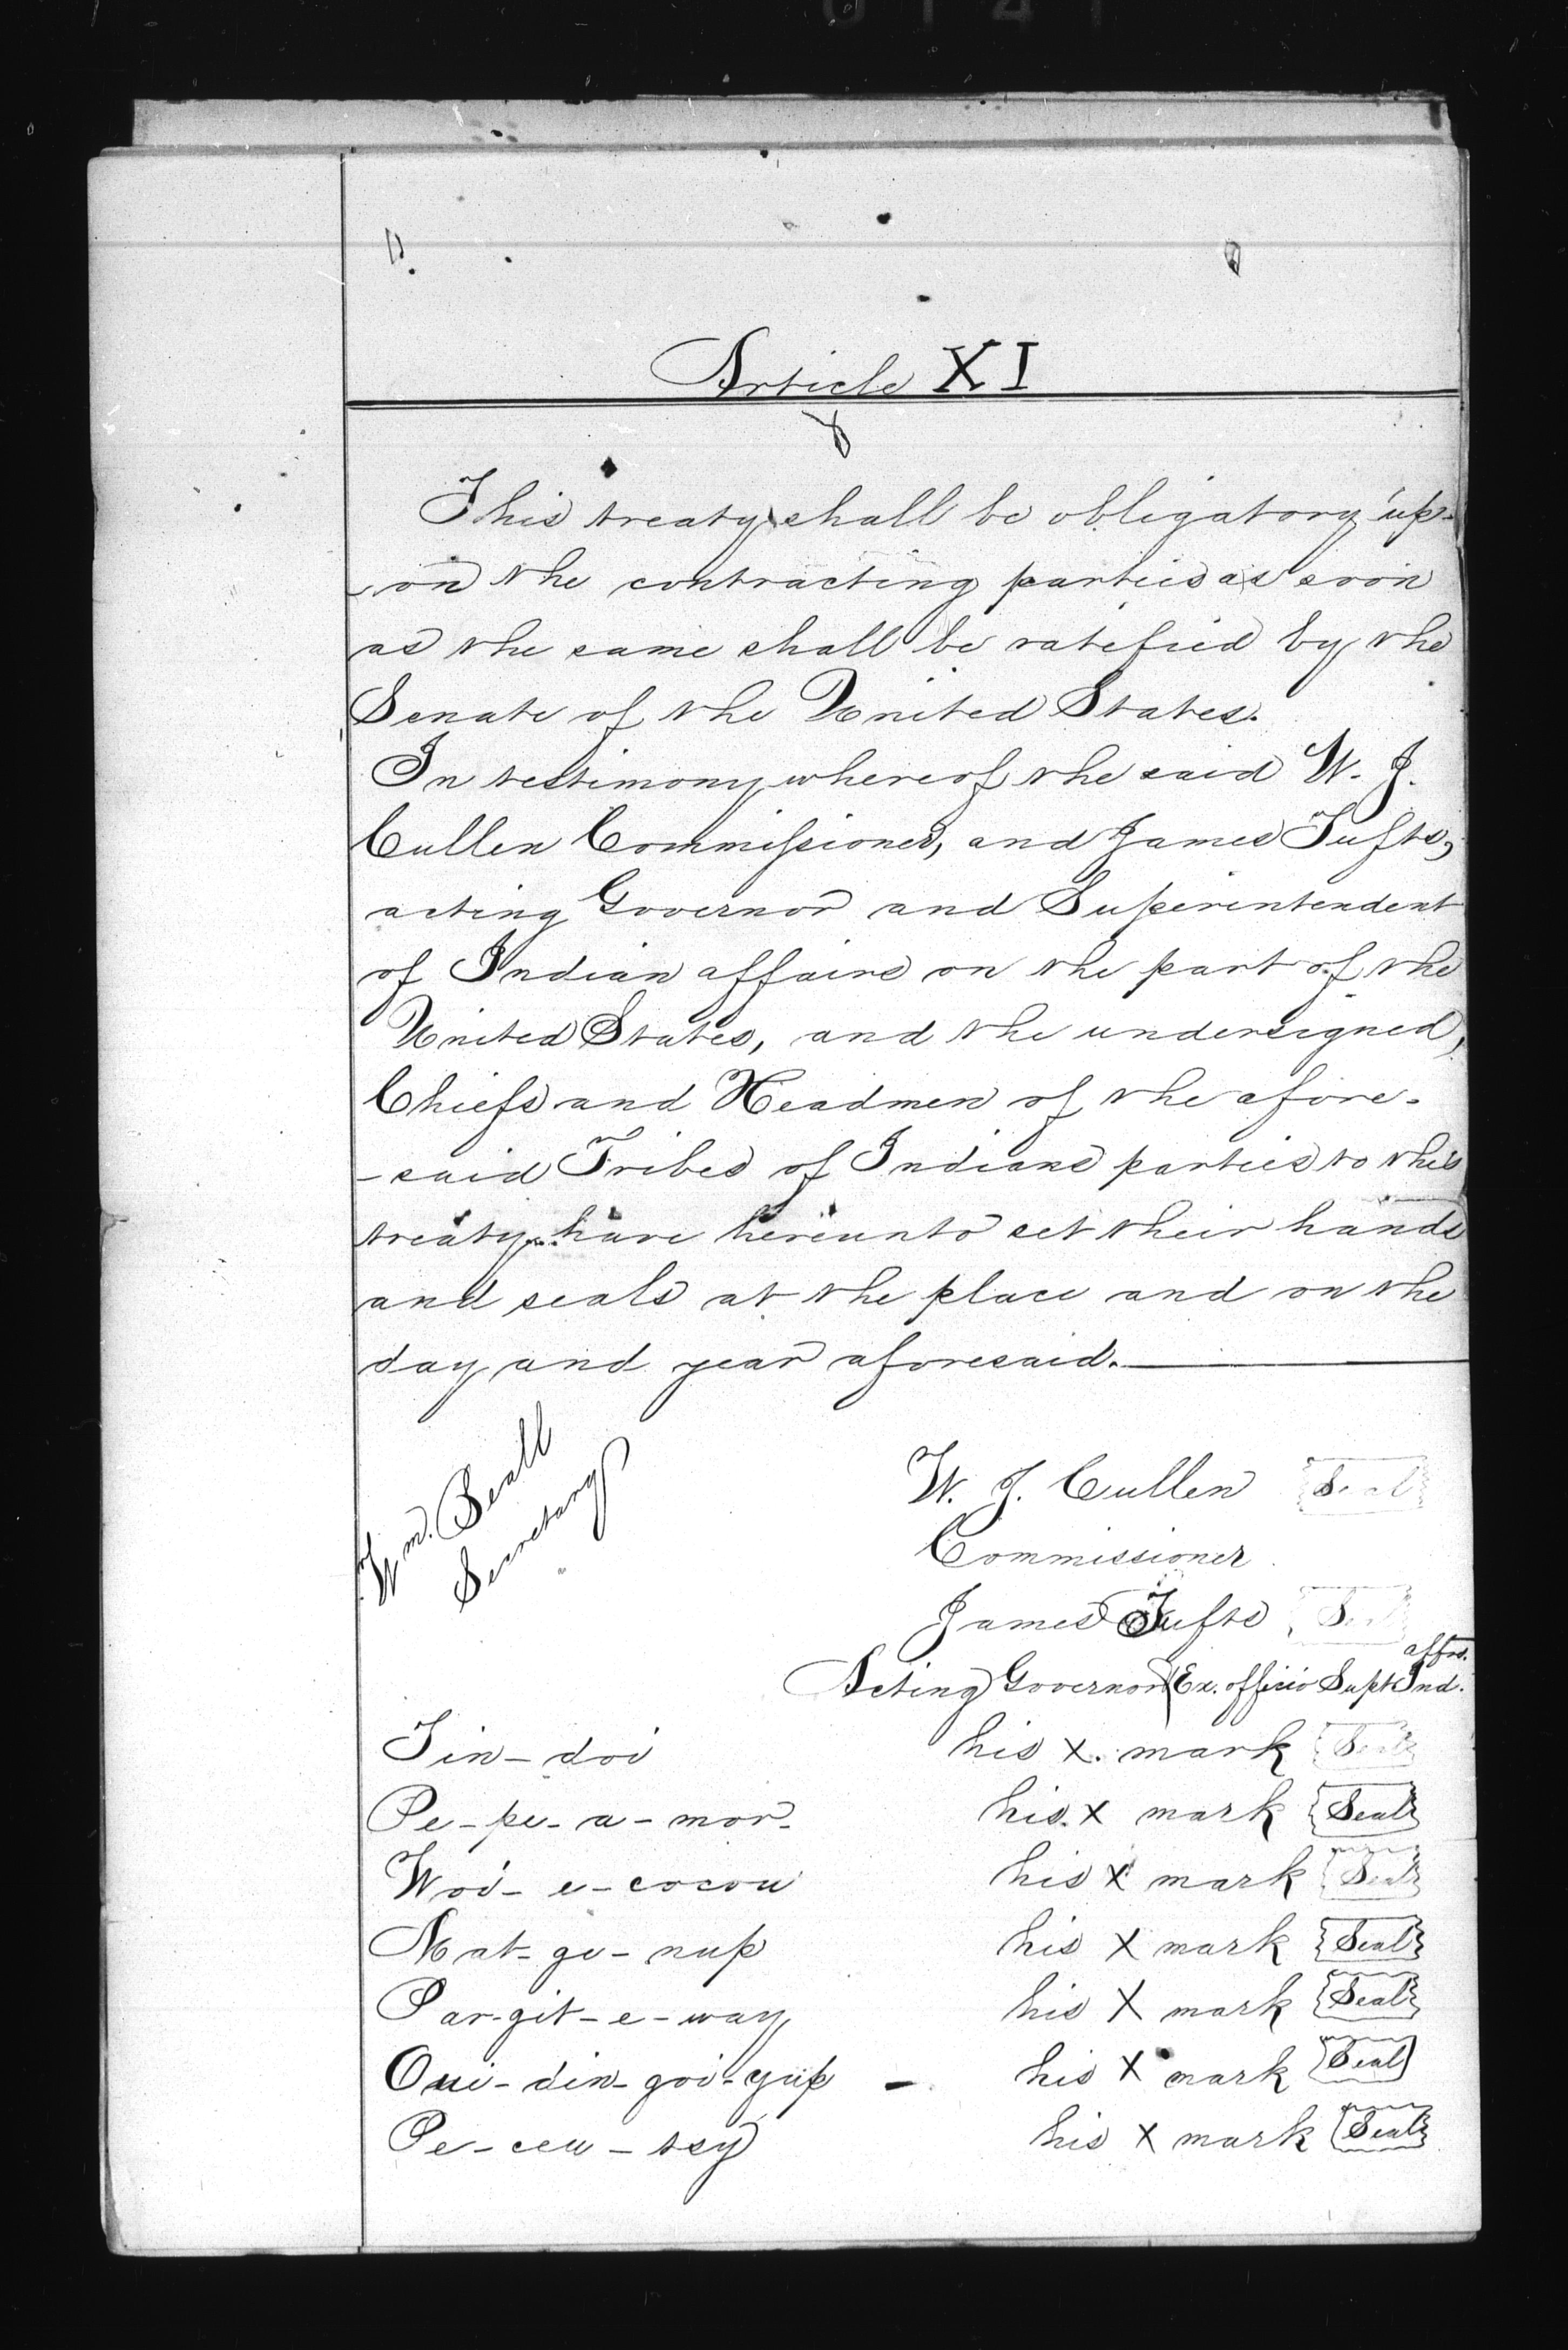 Article XI
This treaty shall be obligatory up-
-on the contracting parties as soon
as the same shall be ratified by the
Senate of the United States.
In testimony whereof the said W. J.
Cullen Commissioner, and James Tufts,
acting Governor and Superintendent
of Indian affairs on the part of the
United States, and the undersigned,
Chiefs and Headmen of the afore-
-said Tribes of Indians parties to this
treaty have hereunto set their hands
and seals at the place and on the
day and year aforesaid.
Wm. Beall
Secretary
W. J. Cullen Seal
Commissioner
James Tufts Seal
Acting Governor & Ex. officio Supt Ind. affrs.
Tin-doi his X mark Seal
Pe-pe-a-mor- his X mark Seal
Woi-e-cocou his X mark Seal
Mat-ge-nup his X mark Seal
Par-git-e-way his X mark Seal
Oui-din-goi-yup - his X mark Seal
Pe-ceu-tsy his X mark Seal